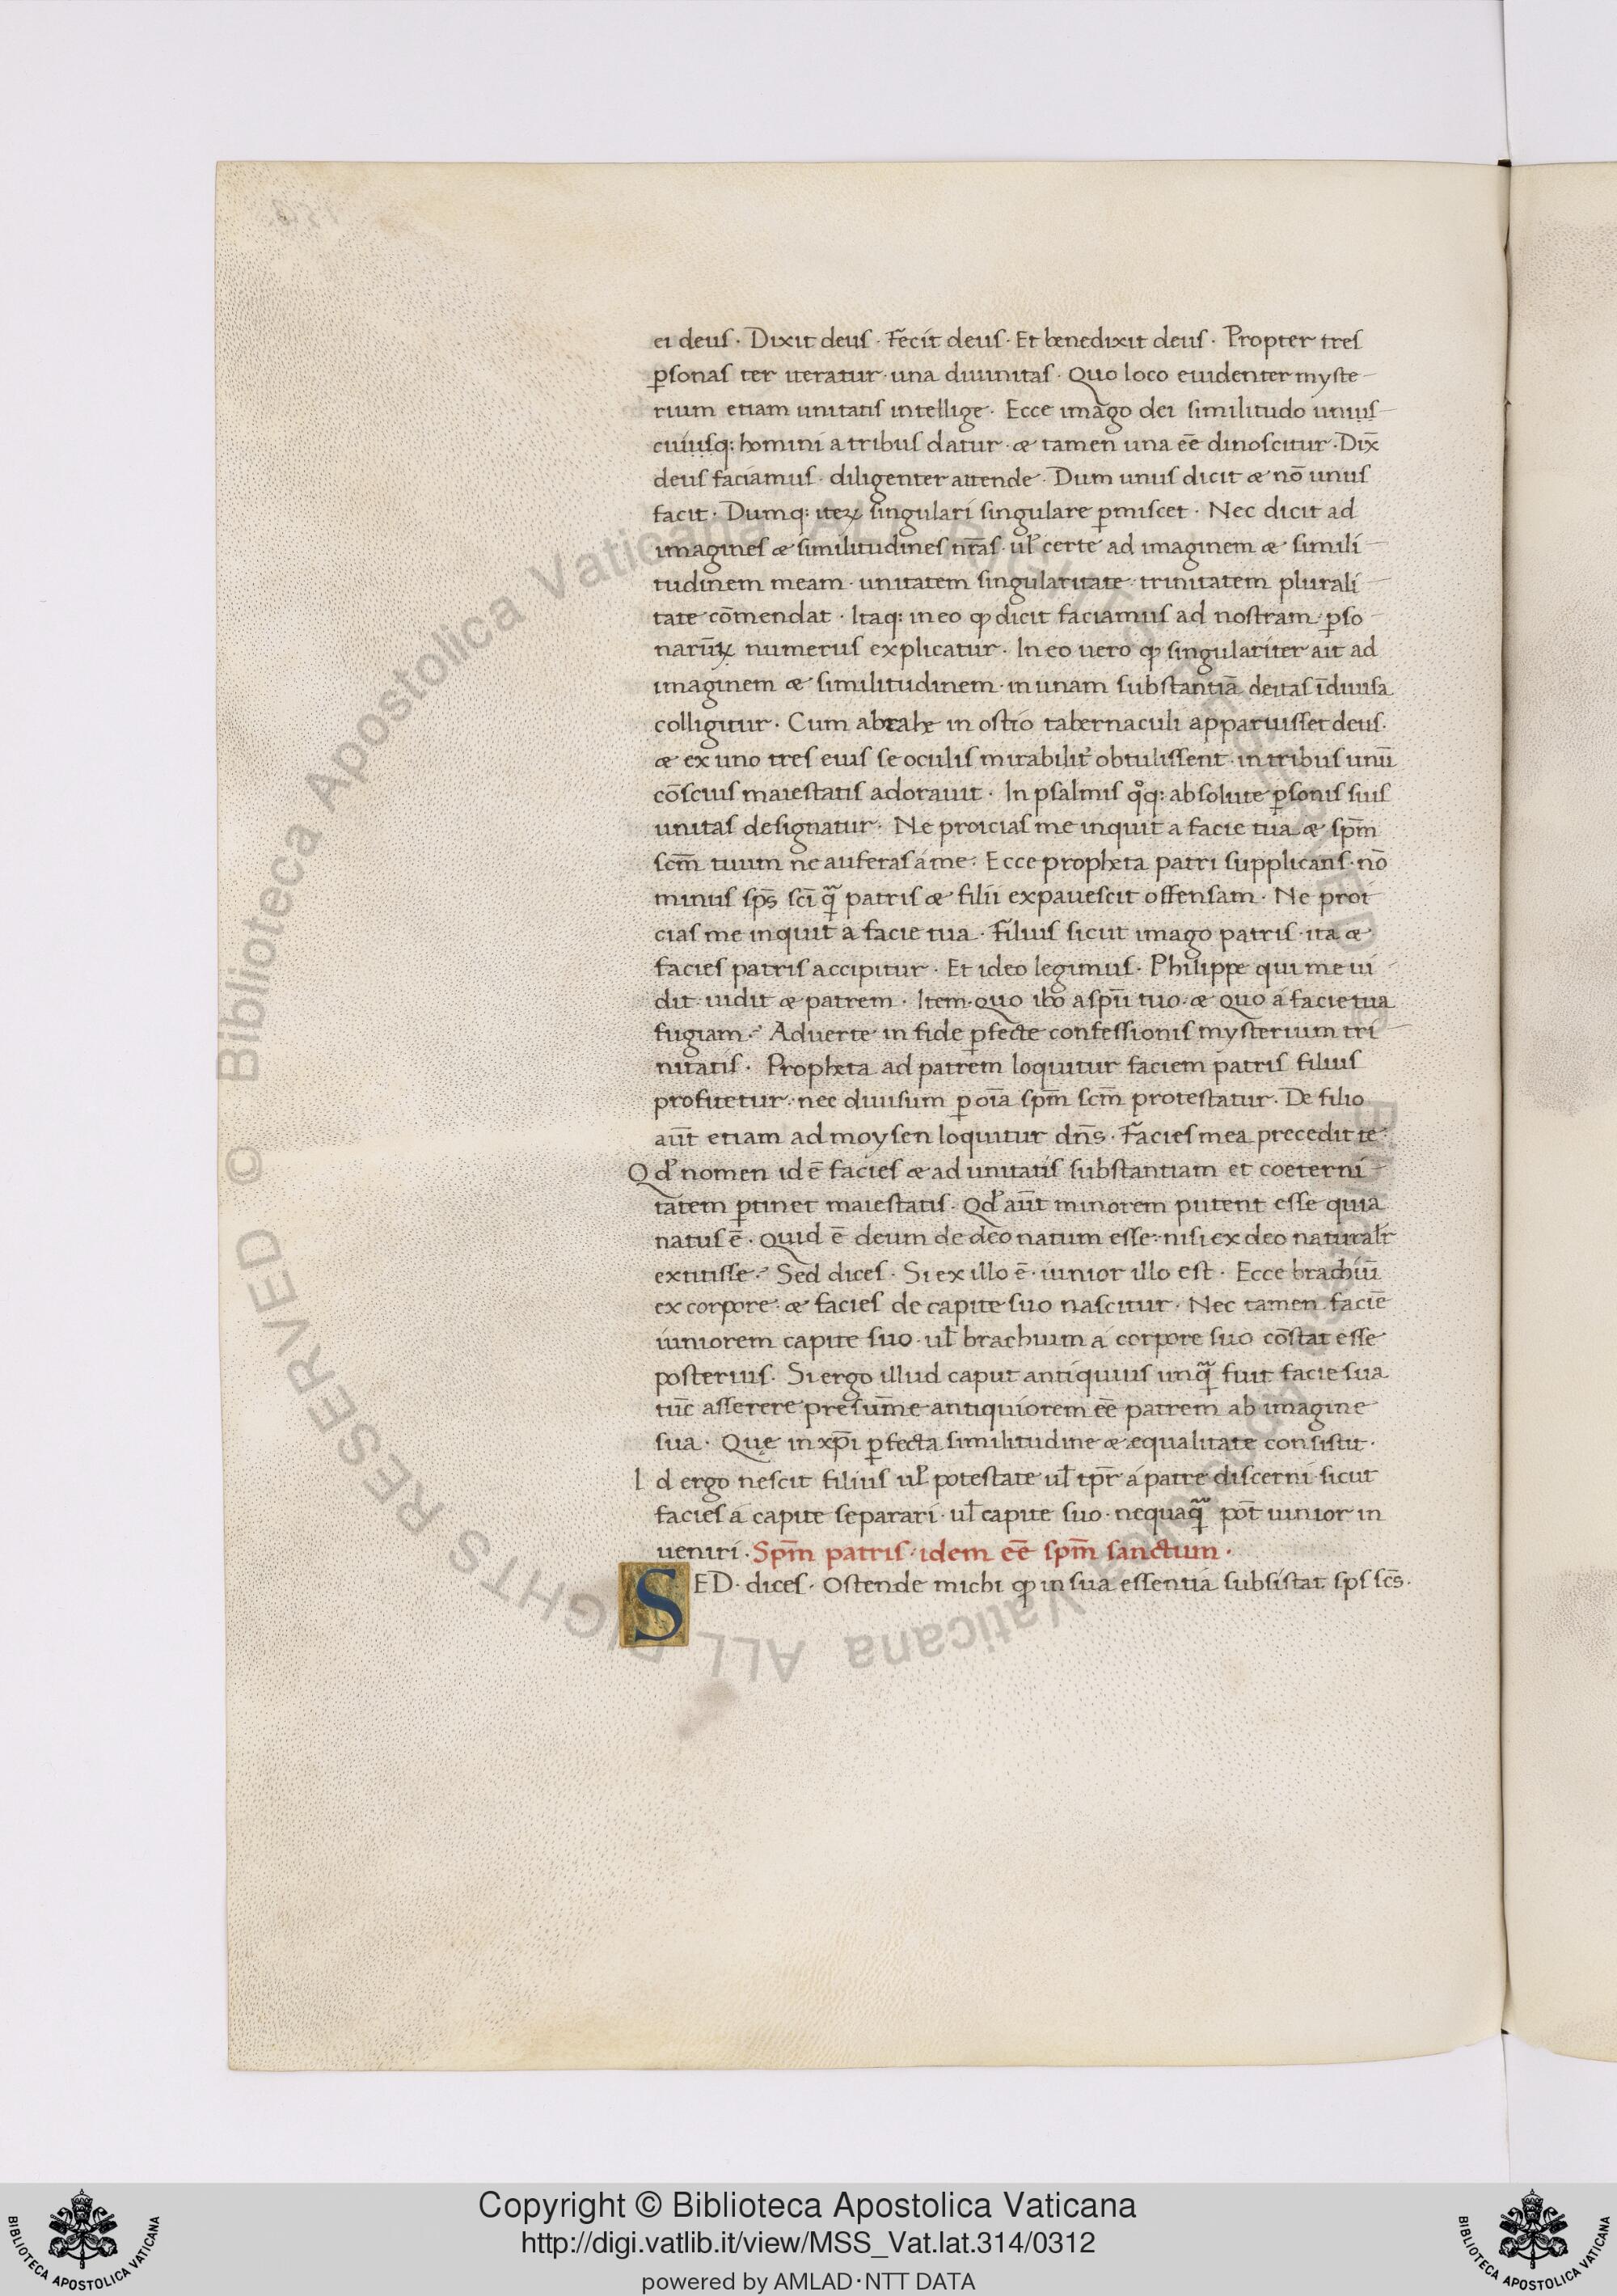 ei deus · Dixit deus · Fecit deus · Et benedixit deus · Propter tres
p̱sonas ter iteratur · una diuinitas · Quo loco euidenter myste
rium etiam unitatis intellige · Ecce imago dei similitudo unius
cuiusq: homini a tribus datur · æ tamen una eē dinoscitur · Dix̄
deus faciamus · diligenter attende · Dum unus dicit æ nō unus
facit · Dumq: iteꝝ singulari singulare p̱miscet · Nec dicit ad
imagines æ similitudines nr̄as · ul̓ certe ad imaginem æ simili
tudinem meam · unitatem singularitate · trinitatem plurali
tate cōmendat · Itaq: in eo ꝙ dicit faciamus ad nostram · p̱so
narūꝝ numerus explicatur · In eo uero ꝙ singulariter ait ad
imaginem æ similitudinem · in unam substantiā deitas īdiuisa
colligitur · Cum abrahe in ostio tabernaculi apparuisset deus ·
æ ex uno tres eius se oculis mirabilit᷑ obtulissent · in tribus unū
cōscius maiestatis adorauit · In psalmis qͦq: absolute p̱sonis suis
unitas designatur · Ne proicias me inquit a facie tua æ sp̄m
scm̄ tuum ne auferas á me · Ecce propheta patri supplicans · nō
minus sp̄s sci̅ qᷓ patris æ filii expauescit offensam · Ne proi
cias me inquit a facie tua · Filius sicut imago patris · ita æ
facies patris accipitur · Et ideo legimus · Philippe qui me ui
dit · uidit æ patrem · Item · quo ibo a spū tuo · æ quo á facie tua
fugiam · Aduerte in fide p̱fecte confessionis mysterium tri
nitatis · Propheta ad patrem loquitur faciem patris filius
profitetur · nec diuisum p̱ oīa sp̄m scm̄ protestatur · De filio
aūt etiam ad moysen loquitur dn̄s · Facies mea precedit te ·
Qd̓ nomen id ē facies æ ad unitatis substantiam et coeterni
tatem p̱tinet maiestatis · Qd̓ aūt minorem putent esse quia
natus ē · Quid ē deum de deo natum esse · nisi ex deo naturalr̄
extitisse · Sed dices · Si ex illo ē · iunior illo est · Ecce brachiū
ex corpore · æ facies de capite suo nascitur · Nec tamen faciē
iuniorem capite suo · ul̓ brachium á corpore suo cōstat esse
posterius · Si ergo illud caput antiquius unqᷓ fuit facie sua
tūc asserere presūme antiquiorem eē patrem ab imagine
sua · Quę in xp̄i p̱fecta similitudine æ æqualitate consistit ·
Id ergo nescit filius ul̓ potestate ul̓ tp̄r á patre discerni · sicut
facies á capite separari · ul̓ capite suo · nequaqᷓ pōt iunior in
ueniri · Sp̄m patris · idem eē sp̄m sanctum ·
SED · dices · Ostende michi ꝙ in sua essentia subsistat sp̄s scs̄ ·
Copyright © Biblioteca Apostolica Vaticana
http://digi.vatlib.it/view/MSS_Vat.lat.314/0312
powered by AMLAD·NTT DATA
BIBLIOTECA APOSTOLICA VATICANA
BIBLIOTECA APOSTOLICA VATICANA